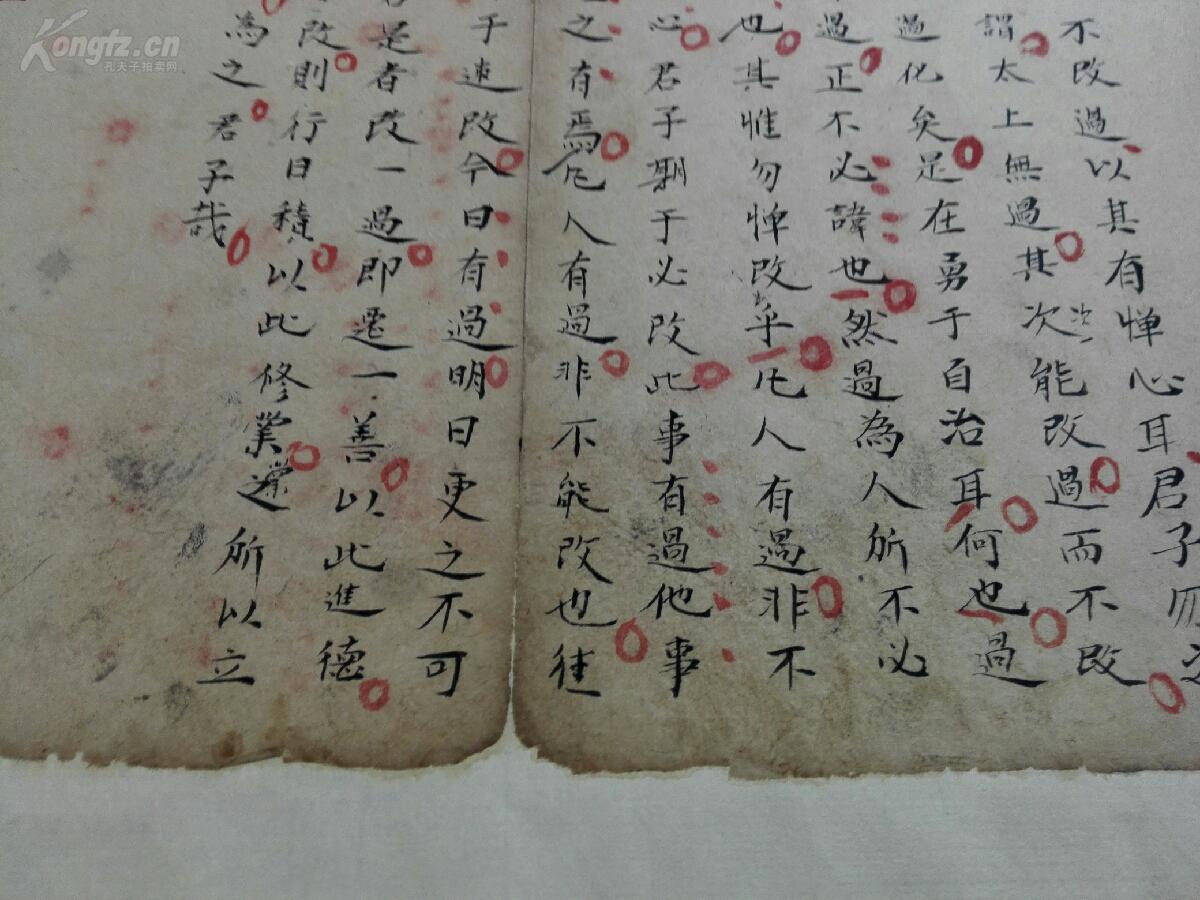 不改過以其有憚心耳君子勿
謂太上無過其次能改過而不改
過化矣足在勇于自治耳何也過
過正不必諱也然過為人所不必
也其惟勿憚改乎凡人有過非不
心君子期于必改此事有過他事
之有焉凡人有過非不能改也往
于速改今日有過明日更之不可
是者改一過即遷一善以此進德
改則行日積以此修業業遂所以立
為之君子哉
Kongfz.cn
孔夫子拍卖网